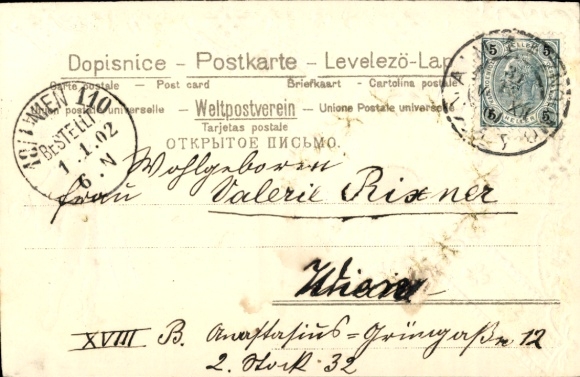 Dopisnice - Postkarte - Levelező-Lap
Carte postale — Post card Briefkaart - Cartolina postale
universelle - Weltpostverein - Unione Postale universelle
Tarjetas postale
ОТКРЫТОЕ ПИСЬМО.
5 5
5 5
HELLER
18/1 WIEN 110
BESTELLT
1.1.02
6.N
Wohlgeboren
Frau Valerie Rixner
Wien
XVIII B. Anastasius=Grüngaße 12
2. Stock 32